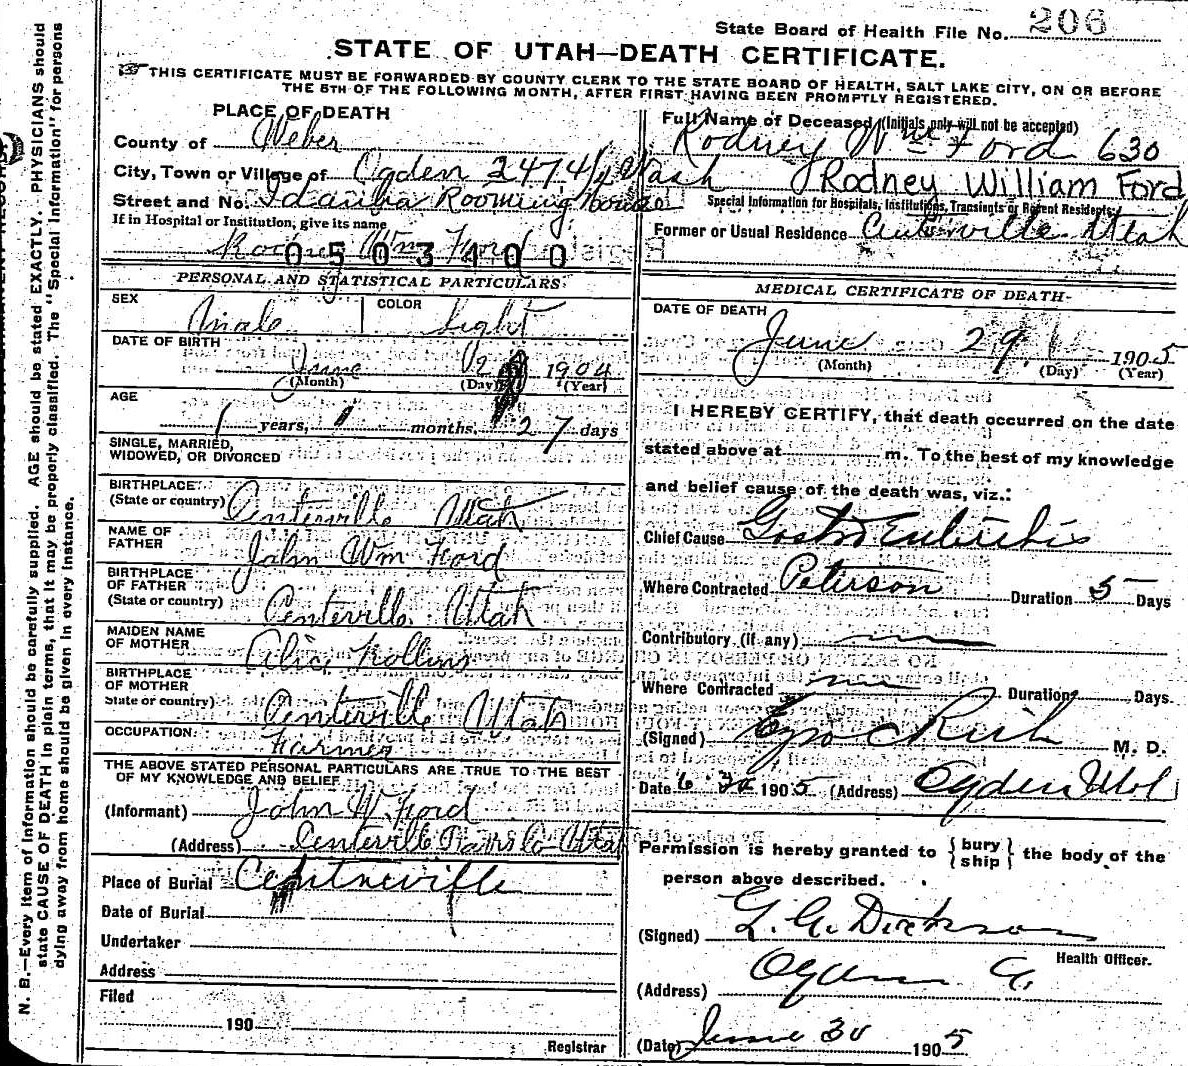 State Board of Health File No. 206
STATE OF UTAH—DEATH CERTIFICATE.
THIS CERTIFICATE MUST BE FORWARDED BY COUNTY CLERK TO THE STATE BOARD OF HEALTH, SALT LAKE CITY, ON OR BEFORE
THE 5TH OF THE FOLLOWING MONTH, AFTER FIRST HAVING BEEN PROMPTLY REGISTERED.
PLACE OF DEATH
County of Weber
City, Town or Village of Ogden 2474 1/2 Wash
Street and No. Idanha Rooming house
If in Hospital or Institution, give its name
Rodney Wm Ford
0503400
Full Name of Deceased (Initials only will not be accepted)
Rodney Wm Ford 630
Rodney William Ford
Special Information for Hospitals, Institutions, Transients or Recent Residents:
Former or Usual Residence Centerville Utah
PERSONAL AND STATISTICAL PARTICULARS
SEX Male COLOR Light
DATE OF BIRTH
June 1904
(Month) (Day) (Year)
AGE
1 years, months, 27 days
SINGLE, MARRIED,
WIDOWED, OR DIVORCED
BIRTHPLACE
(State or country) Centerville Utah
NAME OF
FATHER John Wm Ford
BIRTHPLACE
OF FATHER
(State or country) Centerville Utah
MAIDEN NAME
OF MOTHER Alice Rollins
BIRTHPLACE
OF MOTHER
State or country) Centerville Utah
OCCUPATION Farmer
THE ABOVE STATED PERSONAL PARTICULARS ARE TRUE TO THE BEST
OF MY KNOWLEDGE AND BELIEF
(Informant) John W. Ford
(Address) Centerville Davis Co Utah
Place of Burial Centerville
Date of Burial
Undertaker
Address
Filed
190
Registrar
MEDICAL CERTIFICATE OF DEATH
DATE OF DEATH
June 29 1905
(Month) (Day) (Year)
I HEREBY CERTIFY, that death occurred on the date
stated above at m. To the best of my knowledge
and belief cause of the death was, viz.:
Chief Cause Gastro Enteritis
Where Contracted Peterson Duration 5 Days
Contributory (if any)
Where Contracted Duration Days.
(Signed) Rich M. D.
Date 6 30 1905 (Address) Ogden Utah
Permission is hereby granted to { bury ship } the body of the
person above described.
(Signed) Dickson
Health Officer.
(Address) Ogden
(Date) June 30 1905
N. B.—Every item of information should be carefully supplied. AGE should be stated EXACTLY. PHYSICIANS should
state CAUSE OF DEATH in plain terms, that it may be properly classified. The "Special Information" for persons
dying away from home should be given in every instance.